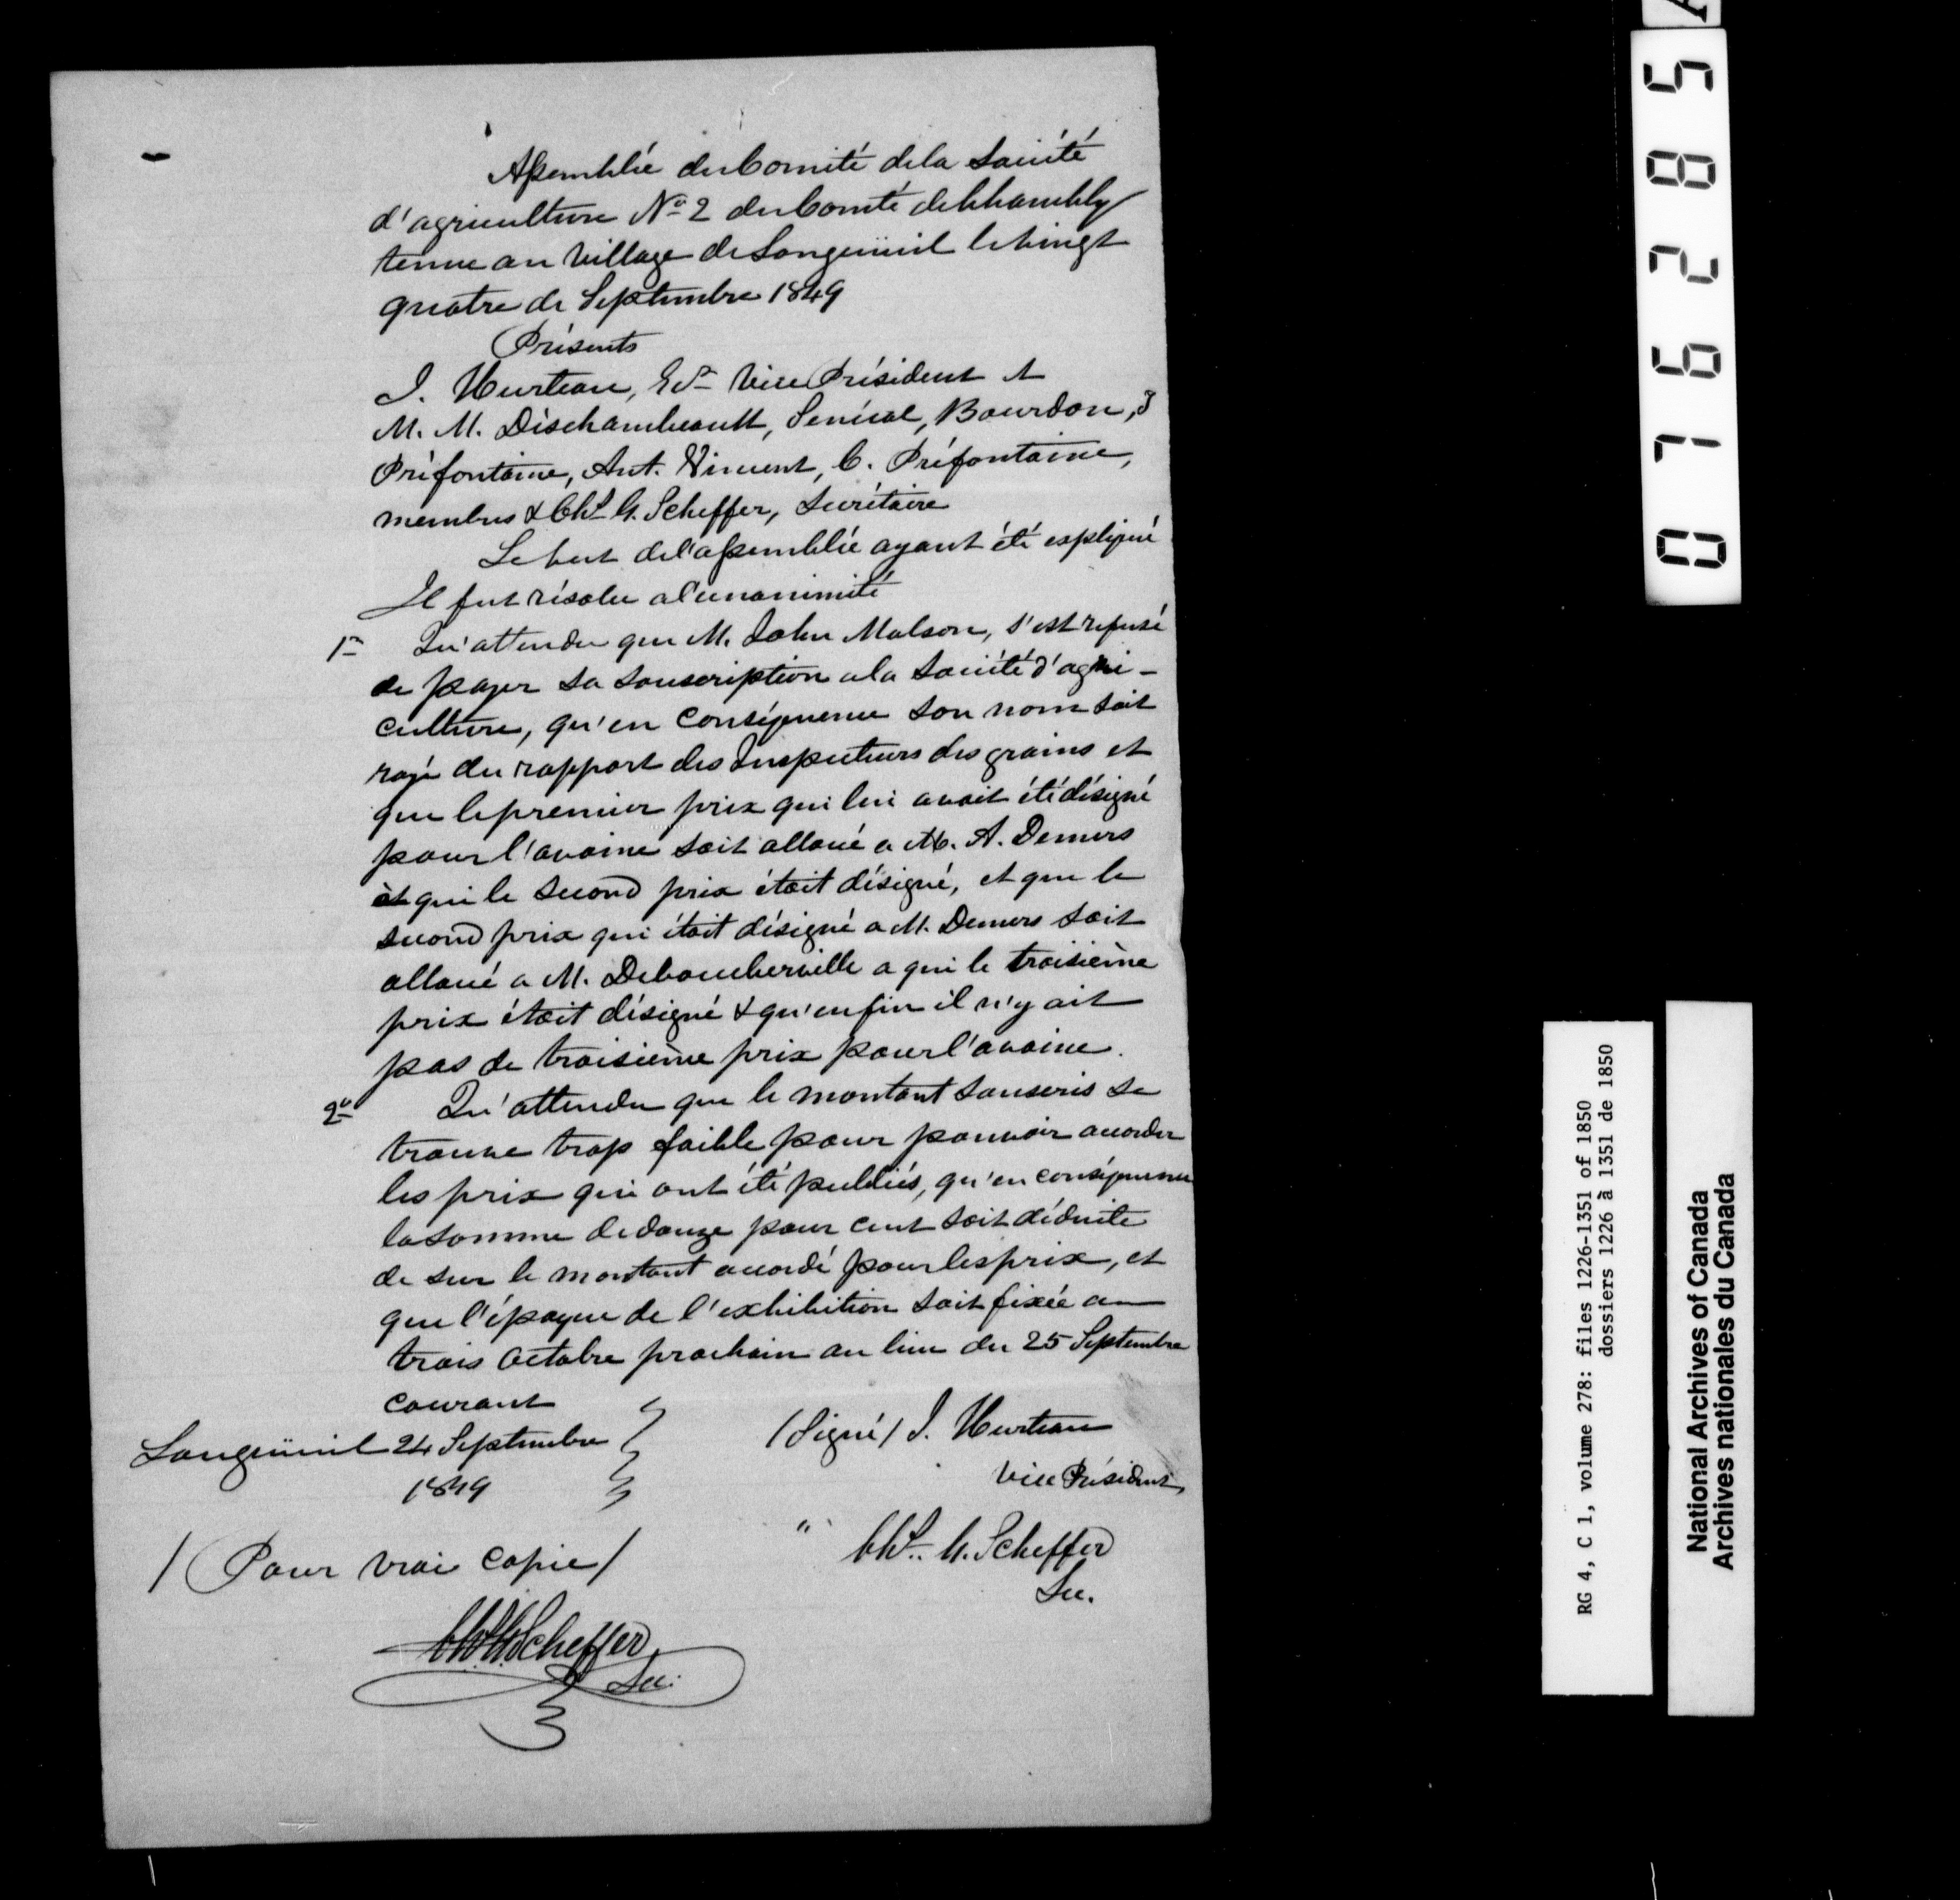 Assemblée du Comité de la Société
d'agriculture No 2 du Comté de Chambly
tenue au Village de Longueüil le vingt
quatre de Septembre 1849
Présents
I. Hurteau, Ecr Vice Président et
M. M. Déschambeault, Senécal, Bourdon, J
Préfontaine, Ant. Vincent, C. Préfontaine,
membres & Chs G. Scheffer, Secrétaire
Le but de l'assemblée ayant été expliqué
Il fut résolu a l'unanimité
1o Qu'attendu que M. John Molson, s'est refusé
de payer sa souscription a la Société d'agri-
culture, qu'en conséquence son nom soit
rayé du rapport des Inspecteurs des grains et
que le premier prix qui lui avait été désigné
pour l'avoine soit alloué a M. A. Demers
a qui le second prix était désigné, et que le
second prix qui était désigné a M. Demers soit
alloué a M. Deboucherville a qui le troisième
prix était désigné & qu'enfin il n'y ait
pas de troisième prix pour l'avoine.
2o Qu'attendu que le montant souscris se
trouve trop faible pour pouvoir accorder
les prix qui ont été publiés, qu'en conséquence
la somme de douze pour cent soit déduite
de sur le montant accordé pour les prix, et
que l'époque de l'exhibition soit fixée au
trois Octobre prochain au lieu du 25 Septembre
courant
Longueüil 24 Septembre
1849
/Signé/ I. Hurteau
Vice Président
" Chs. G. Scheffer
Sec.
/Pour vrai copie/
Chs G. Scheffer
Sec.
076285
RG 4, C 1, volume 278: files 1226-1351 of 1850
dossiers 1226 à 1351 de 1850
National Archives of Canada
Archives nationales du Canada